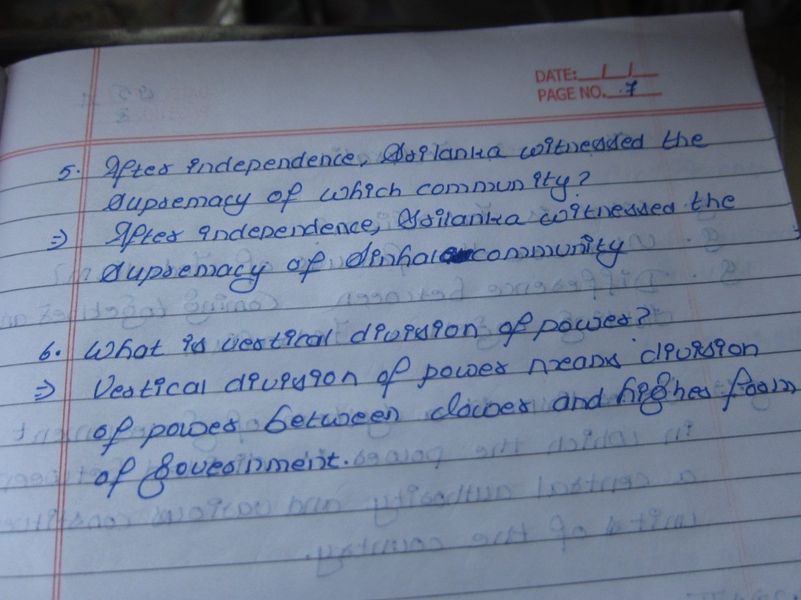 DATE: / /
PAGE NO. 7
5. After independence, Srilanka witnessed the
supremacy of which community?
⇒ After independence, Srilanka witnessed the
supremacy of Sinhala community
6. What is vertical division of power?
⇒ Vertical division of power means division
of power between lower and higher form
of government.